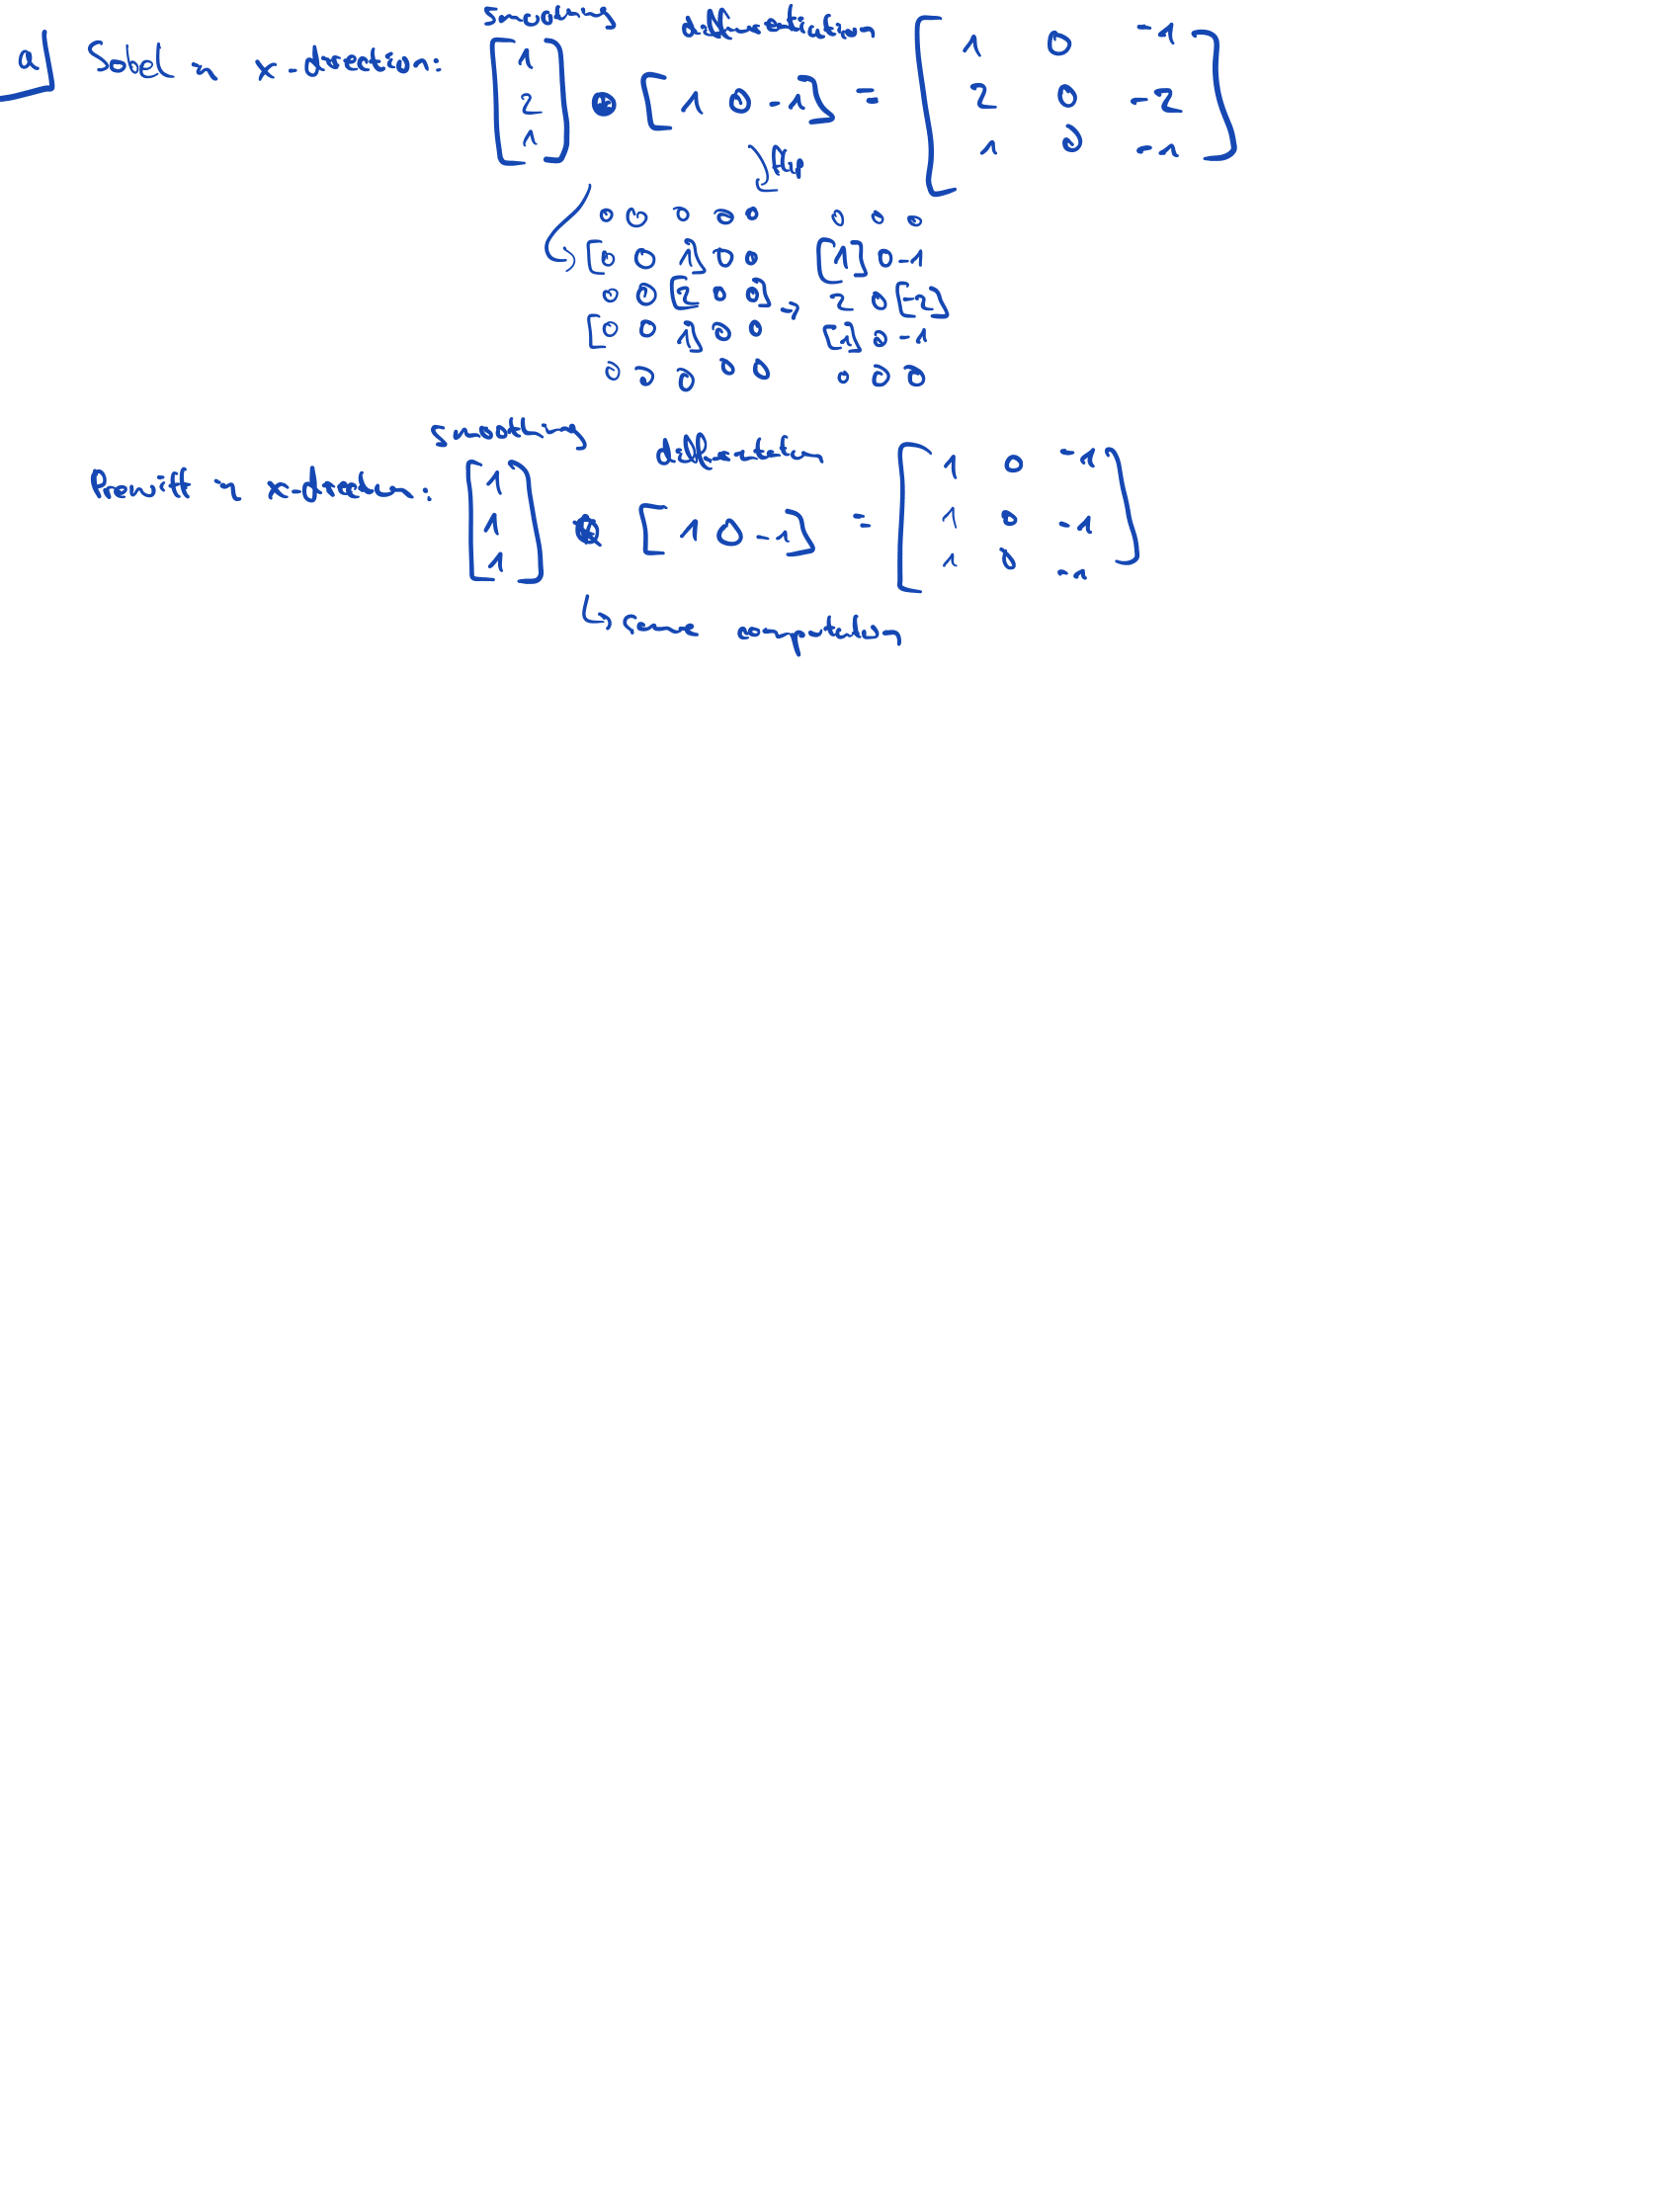 a) Sobel in x-direction: smoothing [1 2 1] ⊛ differentiation [1 0 -1] = [1 0 -1
2 0 -2
1 0 -1]
flip
0 0 0 0 0 0 0 0
[0 0 1] 0 0 [1] 0 -1
0 0 [2 0 0] → 2 0 [-2]
[0 0 1] 0 0 [1] 0 -1
0 0 0 0 0 0 0 0
Prewitt in x-direction: smoothing [1 1 1] ⊛ differentiation [1 0 -1] = [1 0 -1
1 0 -1
1 0 -1]
↳ same computation